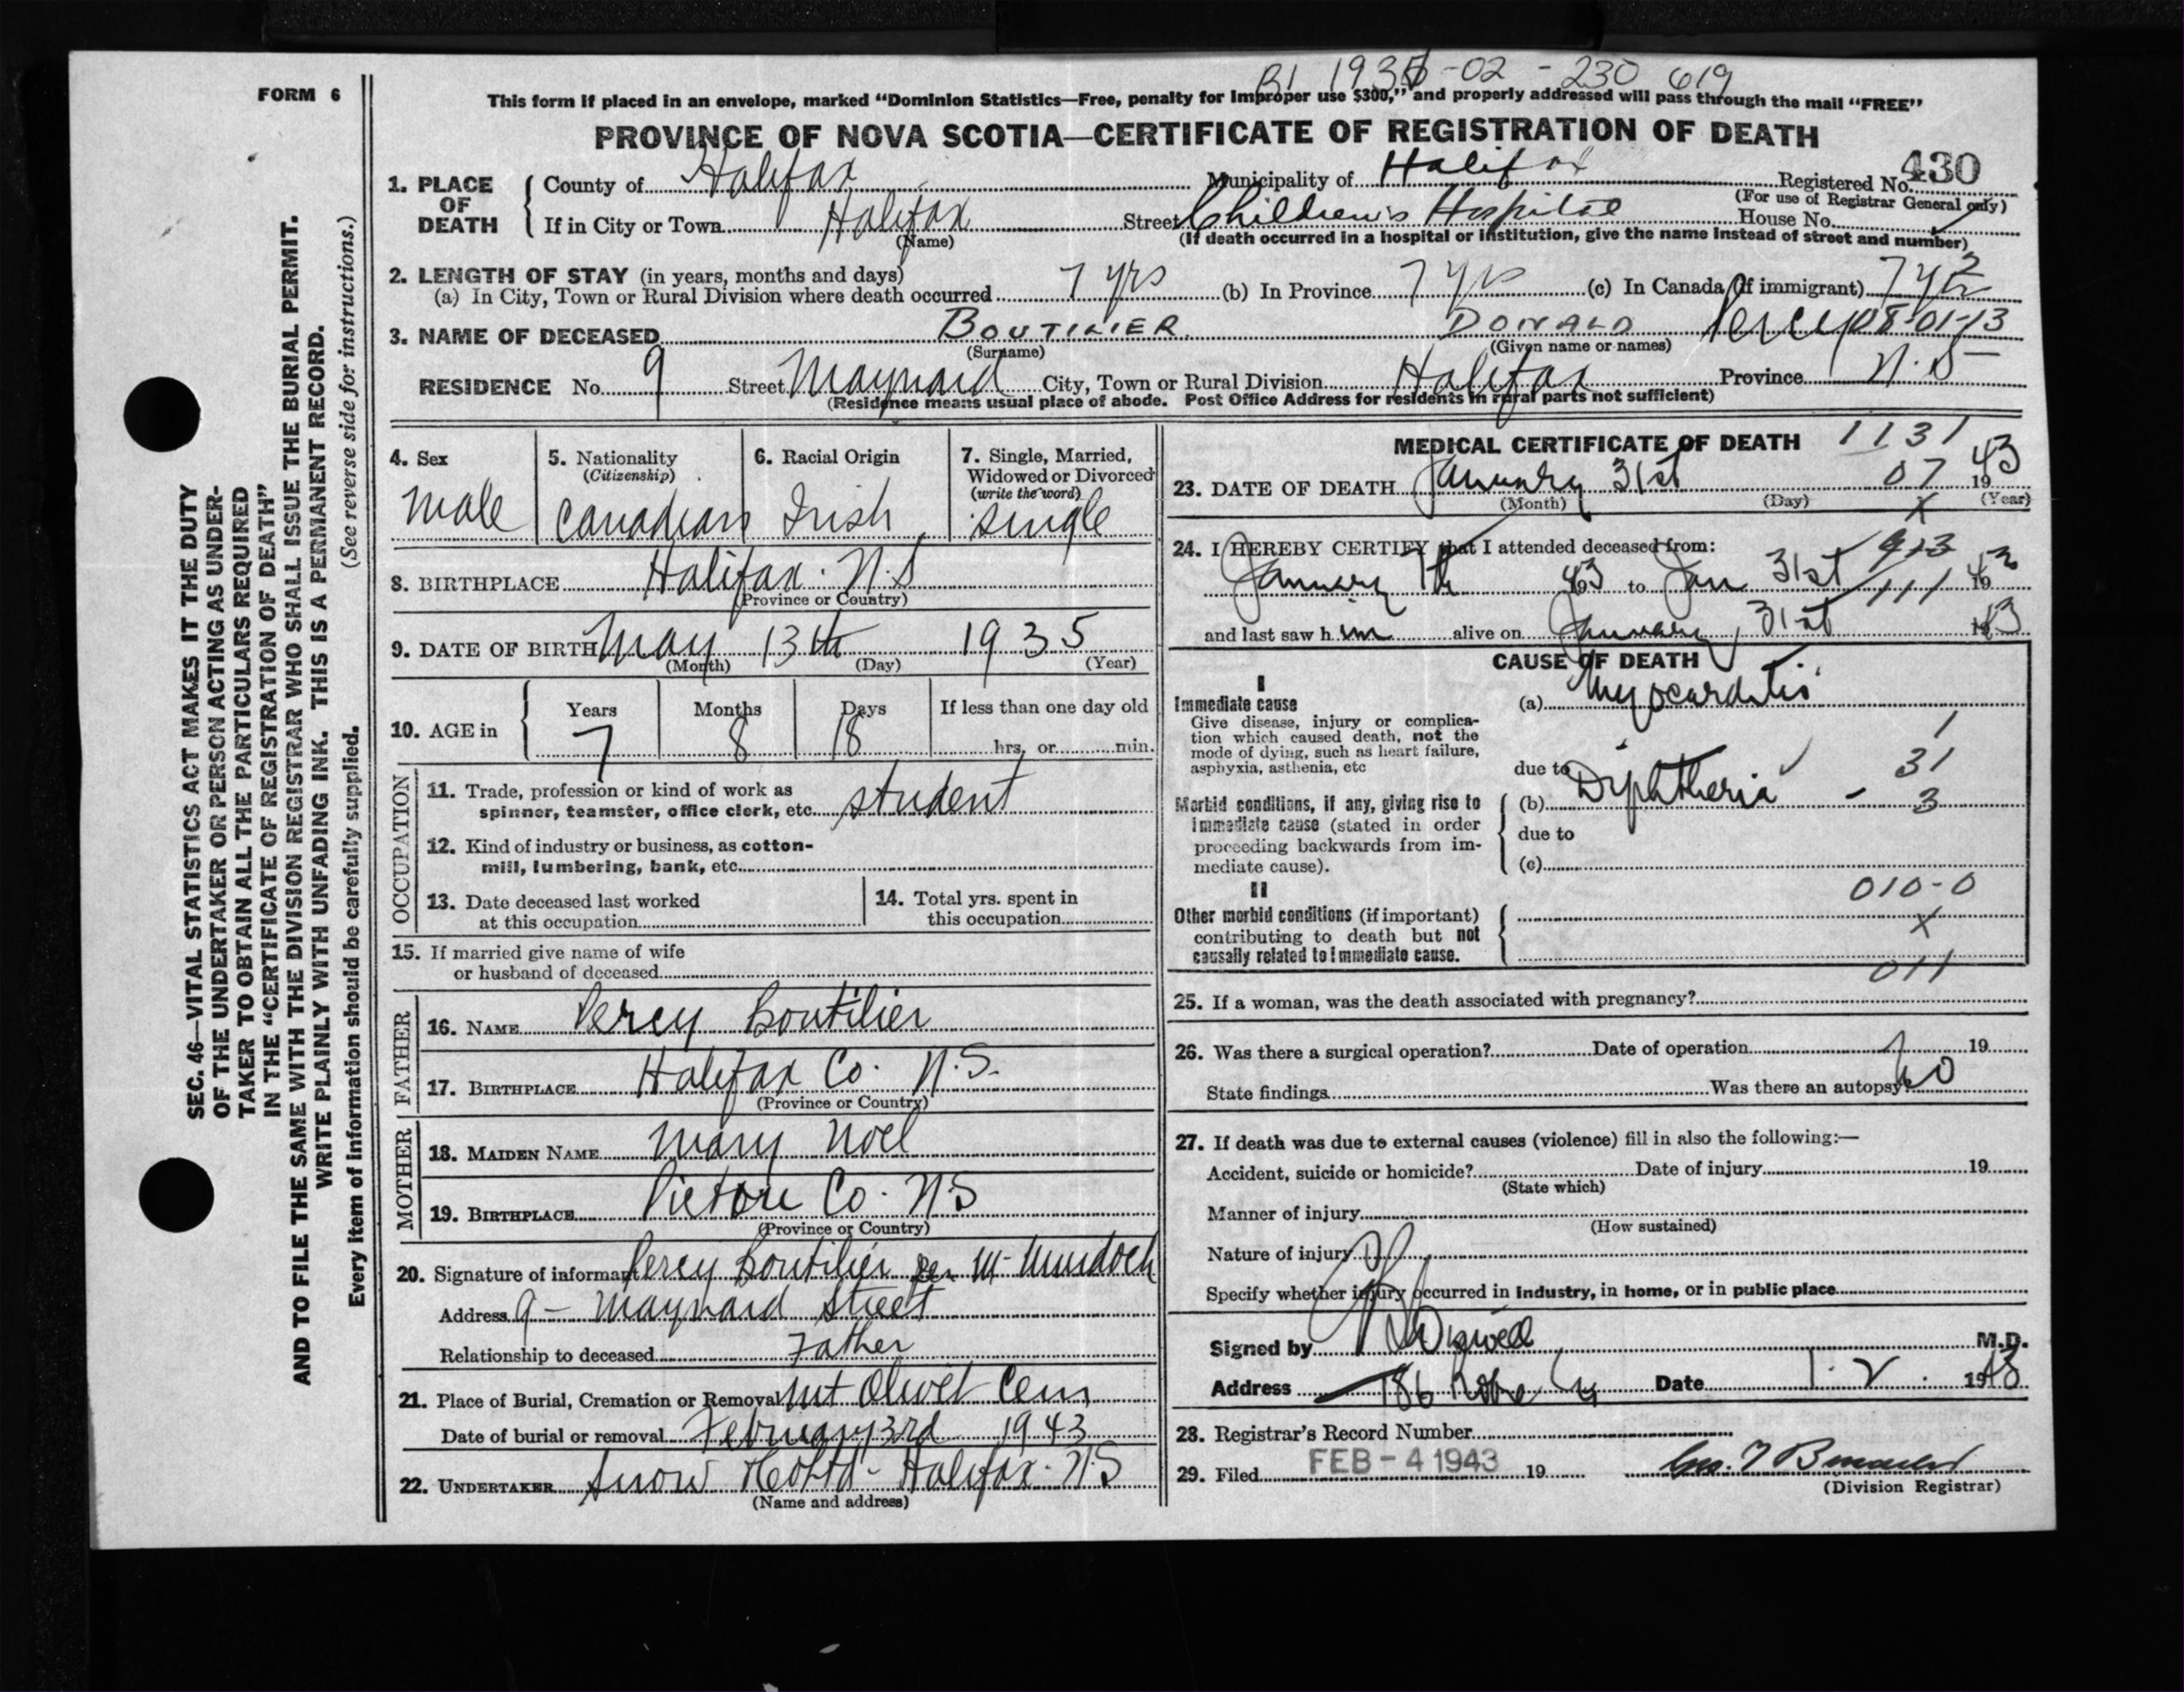 FORM 6
B1 1935-02-230 619
This form if placed in an envelope, marked “Dominion Statistics—Free, penalty for improper use $300,” and properly addressed will pass through the mail “FREE”
PROVINCE OF NOVA SCOTIA—CERTIFICATE OF REGISTRATION OF DEATH
430
1. PLACE OF DEATH
County of Halifax Municipality of Halifax Registered No.
(For use of Registrar General only)
If in City or Town Halifax Street Children's Hospital House No.
(Name) (If death occurred in a hospital or institution, give the name instead of street and number)
2. LENGTH OF STAY (in years, months and days)
(a) In City, Town or Rural Division where death occurred 7 yrs (b) In Province 7 yrs (c) In Canada (if immigrant) 7 y
3. NAME OF DECEASED BOUTILIER DONALD Percy 08-01-13
(Surname) (Given name or names)
RESIDENCE No. 9 Street Maynard City, Town or Rural Division Halifax Province N.S
(Residence means usual place of abode. Post Office Address for residents in rural parts not sufficient)
4. Sex
male
5. Nationality
(Citizenship)
Canadian
6. Racial Origin
Irish
7. Single, Married,
Widowed or Divorced
(write the word)
single
8. BIRTHPLACE Halifax. N.S
(Province or Country)
9. DATE OF BIRTH May 13th 1935
(Month) (Day) (Year)
10. AGE in
Years Months Days If less than one day old
7 8 18 hrs, or min.
OCCUPATION
11. Trade, profession or kind of work as
spinner, teamster, office clerk, etc. student
12. Kind of industry or business, as cotton-
mill, lumbering, bank, etc.
13. Date deceased last worked
at this occupation
14. Total yrs. spent in
this occupation
15. If married give name of wife
or husband of deceased
FATHER
16. NAME Percy Boutilier
17. BIRTHPLACE Halifax Co. N.S.
(Province or Country)
MOTHER
18. MAIDEN NAME Mary Noel
19. BIRTHPLACE Pictou Co. N.S
(Province or Country)
20. Signature of informant Percy Boutilier per M Murdoch
Address 9 - Maynard Street
Relationship to deceased Father
21. Place of Burial, Cremation or Removal Mt Olivet Cem
Date of burial or removal February 3rd 1943
22. UNDERTAKER Snow & Co Ltd - Halifax. N.S
(Name and address)
MEDICAL CERTIFICATE OF DEATH 1131
23. DATE OF DEATH January 31st 07 1943
(Month) (Day) (Year)
X
24. I HEREBY CERTIFY that I attended deceased from:
January 7th 1943 to Jan 31st 1943
111
and last saw him alive on January 31st 1943
CAUSE OF DEATH
I
Immediate cause
Give disease, injury or complica-
tion which caused death, not the
mode of dying, such as heart failure,
asphyxia, asthenia, etc
(a) Myocarditis
1
due to
31
Morbid conditions, if any, giving rise to
immediate cause (stated in order
proceeding backwards from im-
mediate cause).
(b) Diphtheria - 3
due to
(c)
II
010-0
Other morbid conditions (if important)
contributing to death but not
causally related to immediate cause.
X
011
25. If a woman, was the death associated with pregnancy?
26. Was there a surgical operation? Date of operation 19
State findings Was there an autopsy No
27. If death was due to external causes (violence) fill in also the following:—
Accident, suicide or homicide? Date of injury 19
(State which)
Manner of injury
(How sustained)
Nature of injury
Specify whether injury occurred in industry, in home, or in public place
Signed by M.D.
Address 186 Date 1.2.1943
28. Registrar's Record Number
29. Filed FEB - 4 1943 19
(Division Registrar)
SEC. 46—VITAL STATISTICS ACT MAKES IT THE DUTY
OF THE UNDERTAKER OR PERSON ACTING AS UNDER-
TAKER TO OBTAIN ALL THE PARTICULARS REQUIRED
IN THE “CERTIFICATE OF REGISTRATION OF DEATH”
AND TO FILE THE SAME WITH THE DIVISION REGISTRAR WHO SHALL ISSUE THE BURIAL PERMIT.
WRITE PLAINLY WITH UNFADING INK. THIS IS A PERMANENT RECORD.
(See reverse side for instructions.)
Every item of information should be carefully supplied.